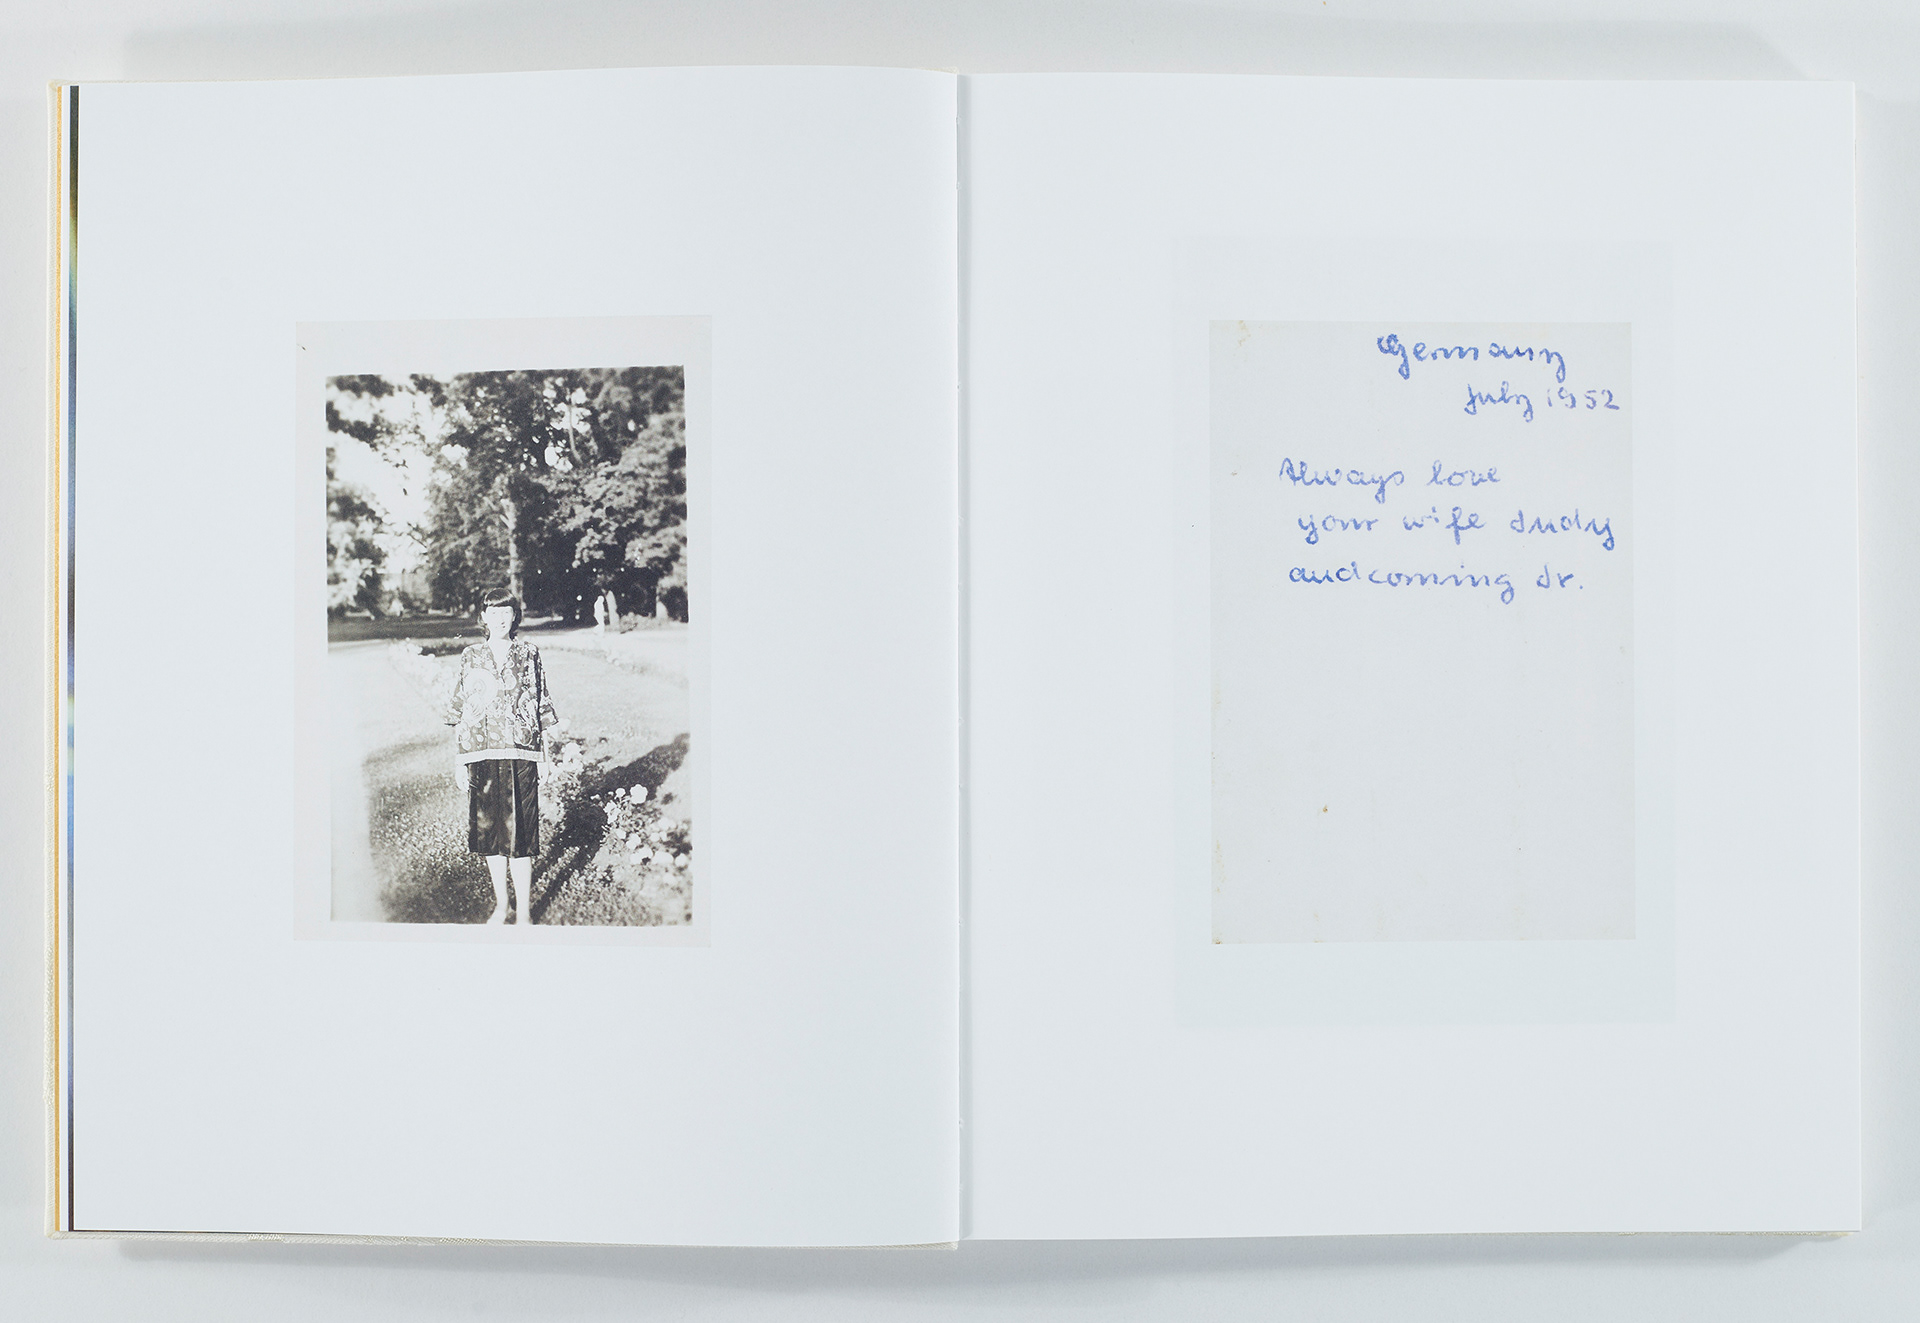 Germany
July 1952
Always love
your wife Judy
and coming Jr.